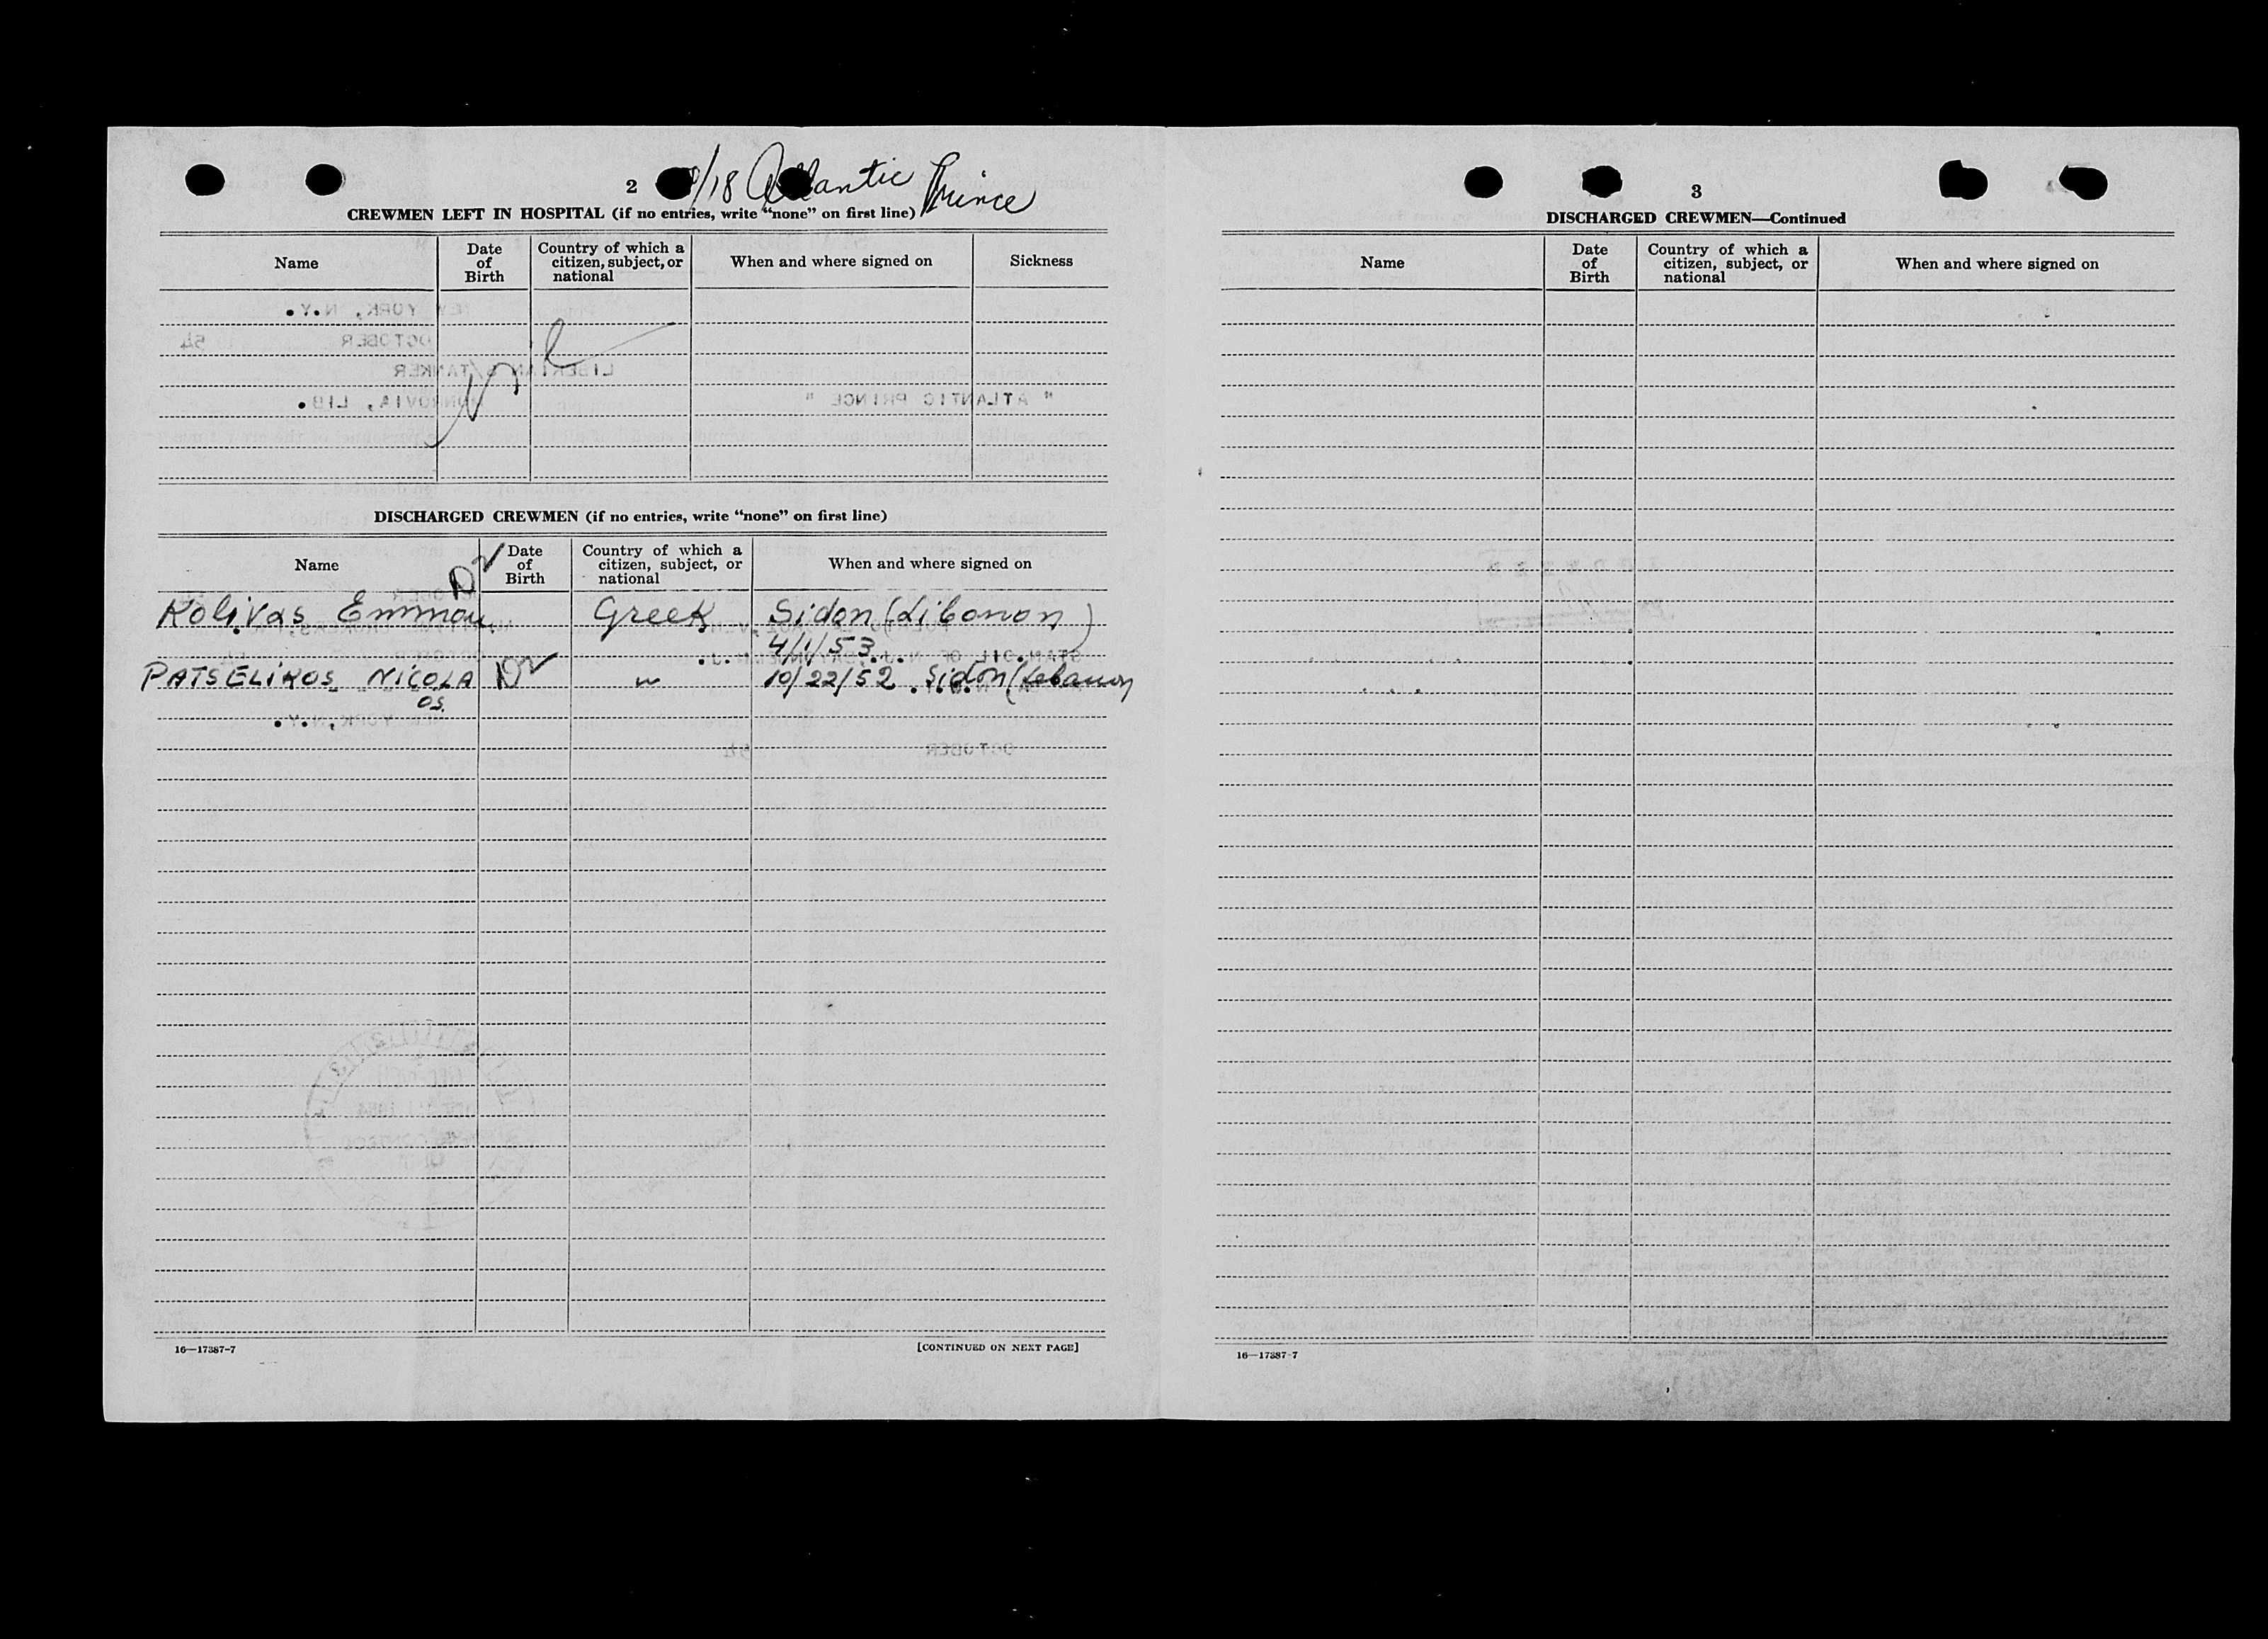 2
/18 Atlantic Prince
CREWMEN LEFT IN HOSPITAL (if no entries, write “none” on first line)
Name
Date of Birth
Country of which a citizen, subject, or national
When and where signed on
Sickness
nil
NEW YORK, N.Y.
OCTOBER 54
LIBERIAN S/TANKER
" ATLANTIC PRINCE " MONROVIA, LIB.
DISCHARGED CREWMEN (if no entries, write “none” on first line)
Name
Date of Birth
Country of which a citizen, subject, or national
When and where signed on
Kolivas Emmau. Greek Sidon (Libonon)
4/1/53
PATSELIKOS NICOLA
OS. " 10/22/52 Sidon (Lebanon
NEW YORK, N.Y.
OCTOBER 54
16—17387-7
[CONTINUED ON NEXT PAGE]
3
DISCHARGED CREWMEN—Continued
Name
Date of Birth
Country of which a citizen, subject, or national
When and where signed on
16—17387-7